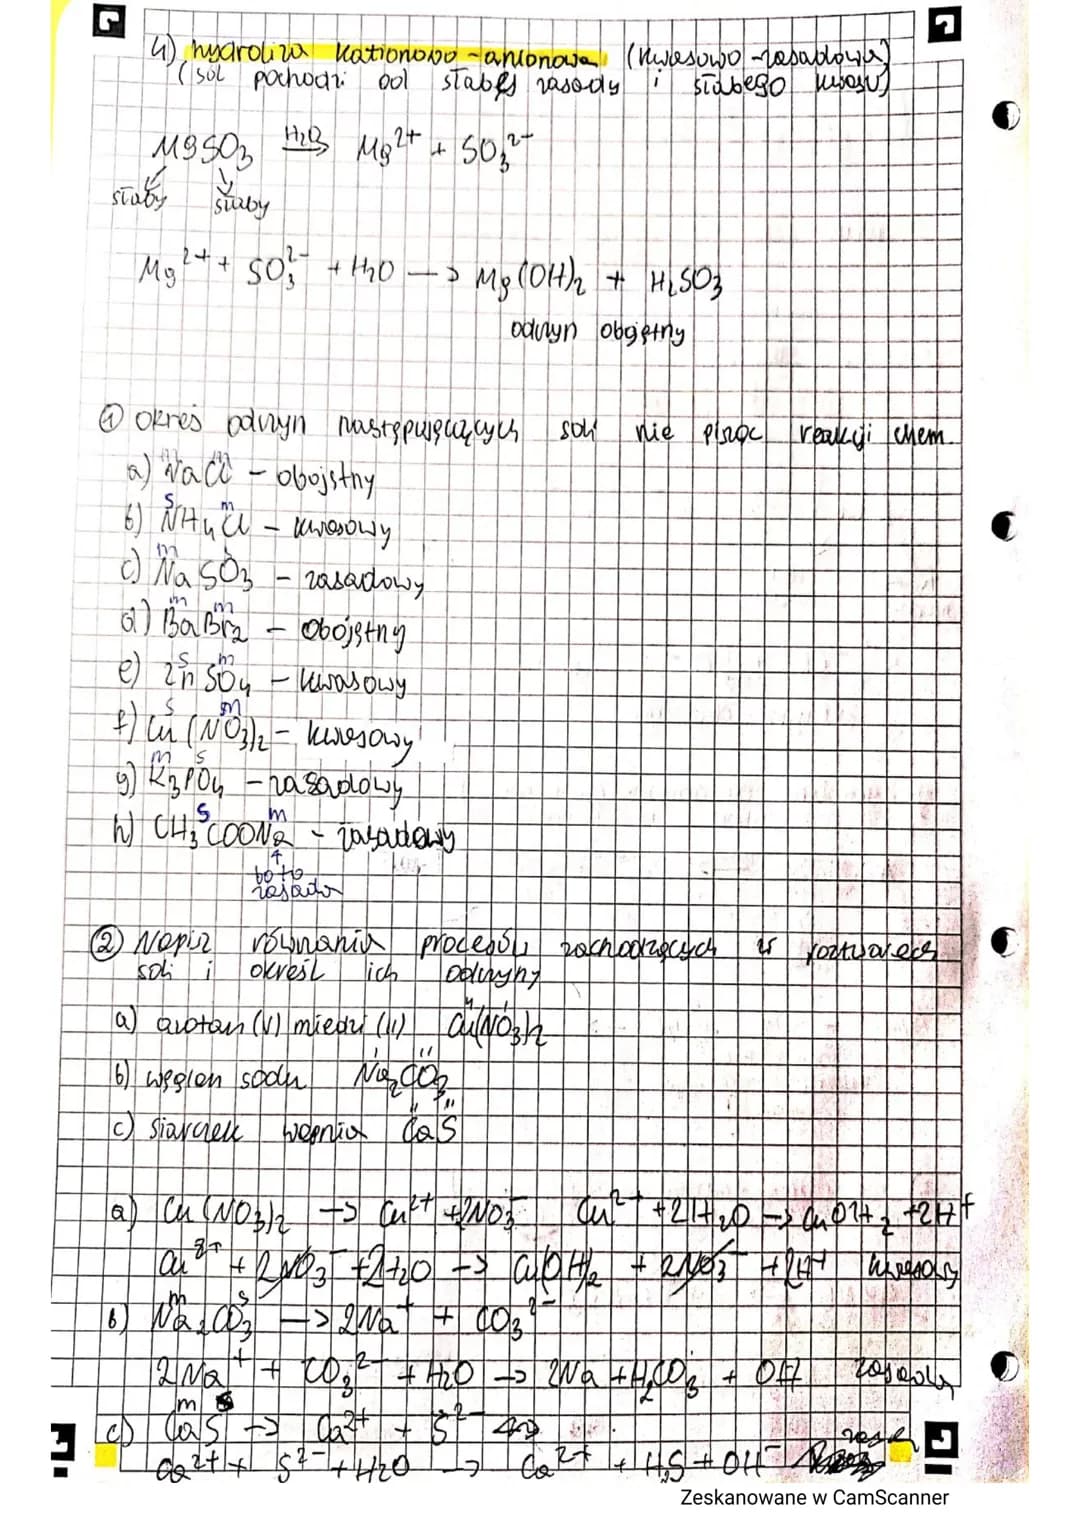 4) hydroliza kationowo-anionowa (kwasowo-zasadowa)
(sól pochodzi od słabej zasady i słabego kwasu)
MgSO3 H2O Mg2+ + SO3 2-
słaby słaby
Mg2+ + SO3 2- + H2O → Mg(OH)2 + H2SO3
odczyn obojętny
① Okreś odczyn następujęcących soli nie pisąc reakcji chem.
a) NaCl - obojętny
b) NH4Cl - kwasowy
c) NaSO3 - zasadowy
d) BaBr2 - obojętny
e) ZnSO4 - kwasowy
f) Cu(NO3)2 - kwasowy
g) K3PO4 - zasadowy
h) CH3COONa - zasadowy
bo to
zasada
② Napisz równania procesów zachodzących w roztworach
soli i określ ich odczyny
a) azotan (V) miedzi (II) Cu(NO3)2
b) węglan sodu Na2CO3
c) siarczek wapnia CaS
a) Cu(NO3)2 → Cu2+ + 2NO3- Cu2+ + 2H2O → CuOH2 + 2H+
Cu2+ + 2NO3- + 2H2O → CuOH2 + 2NO3- + 2H+ kwasowy
b) Na2CO3 → 2Na+ + CO3 2-
2Na+ + CO3 2- + H2O → 2Na + H2CO3 + OH zasadowy
c) CaS → Ca2+ + S2-
Ca2+ + S2- + H2O → Ca2+ + H2S + OH-
Zeskanowane w CamScanner